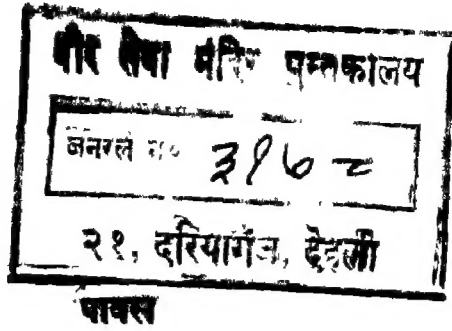 वीर सेवा मंदिर पुस्तकालय
जनरल न०
२१, दरियागंज, देहली